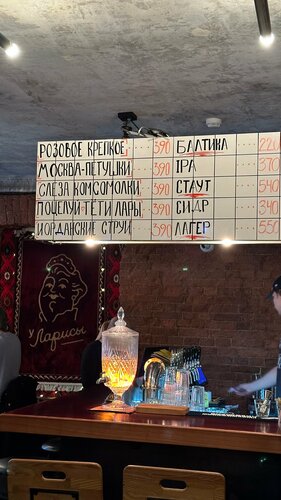 РОЗОВОЕ КРЕПКОЕ 390 БАЛТИКА 220
МОСКВА-ПЕТУШКИ 390 IPA 370
СЛЕЗА КОМСОМОЛКИ 390 СТАУТ 540
ПОЦЕЛУЙ ТЁТИ ЛАРЫ 390 СИДР 340
ИОРДАНСКИЕ СТРУИ 390 ЛАГЕР 550
у Ларисы